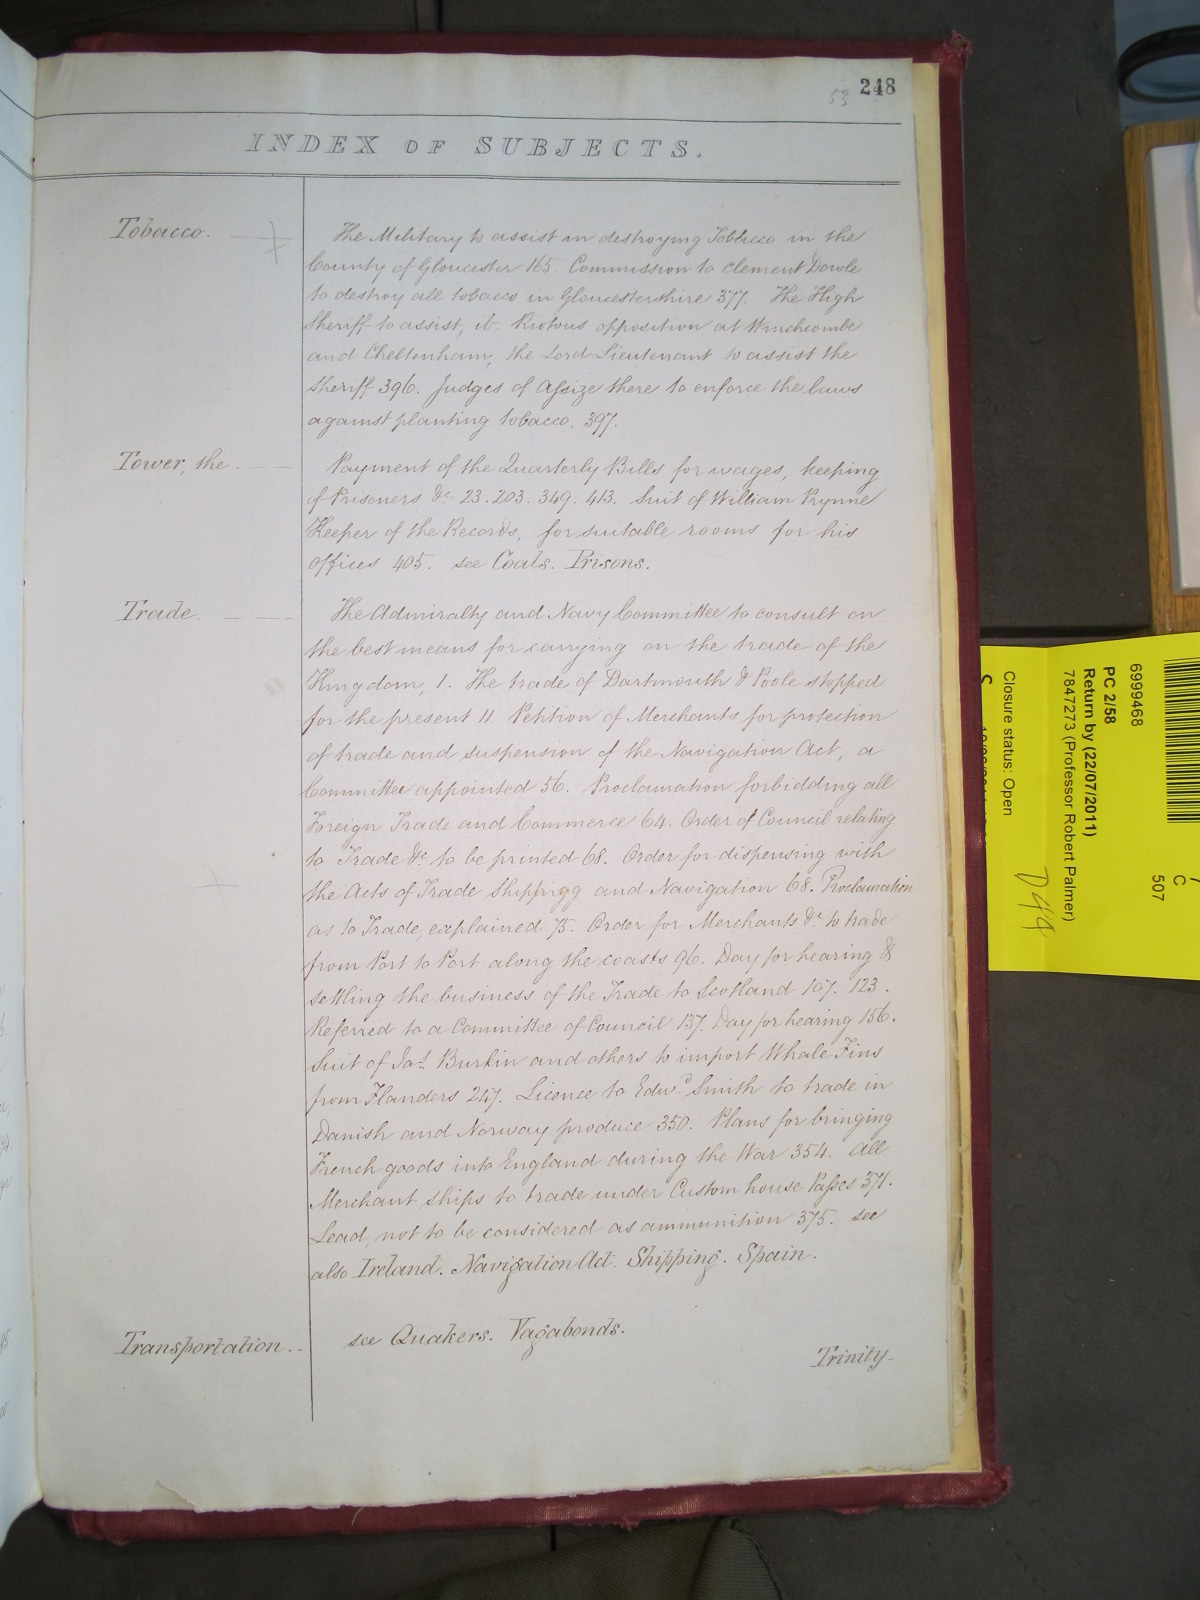 248
53
INDEX OF SUBJECTS.
Tobacco.
The Military to assist in destroying Tobacco in the
County of Gloucester 165. Commission to Clement Dowle
to destroy all tobacco in Gloucestershire 377. The High
Sheriff to assist, ib. Riotous opposition at Winchcombe
and Cheltenham, the Lord Lieutenant to assist the
Sheriff 396. Judges of Assize there to enforce the laws
against planting tobacco. 397.
Tower, the
Payment of the Quarterly Bills for wages, keeping
of Prisoners &c 23. 203. 349. 413. Suit of William Prynne
Keeper of the Records, for suitable rooms for his
offices 405. see Coals. Prisons.
Trade.
The Admiralty and Navy Committee to consult on
the best means for carrying on the trade of the
Kingdom, 1. The trade of Dartmouth & Poole stopped
for the present 11. Petition of Merchants for protection
of trade and suspension of the Navigation Act, a
Committee appointed 56. Proclamation forbidding all
Foreign Trade and Commerce 64. Order of Council relating
to Trade &c to be printed 68. Order for dispensing with
the Acts of Trade Shippigg and Navigation 68. Proclamation
as to Trade, explained 75. Order for Merchants &c to trade
from Port to Port along the coasts 96. Day for hearing &
settling the business of the Trade to Scotland 107. 123.
Referred to a Committee of Council 137. Day for hearing 156.
Suit of Jas. Burkin and others to import Whale Fins
from Flanders 247. Licence to Edwd. Smith to trade in
Danish and Norway produce 350. Plans for bringing
French goods into England during the War 354. All
Merchant ships to trade under Custom house Passes 371.
Lead, not to be considered as ammunition 375. see
also Ireland. Navigation Act. Shipping. Spain.
Transportation.
see Quakers. Vagabonds.
Trinity-
6999468
PC 2/58
Return by (22/07/2011)
7847273 (Professor Robert Palmer)
Closure status: Open
C
507
D44